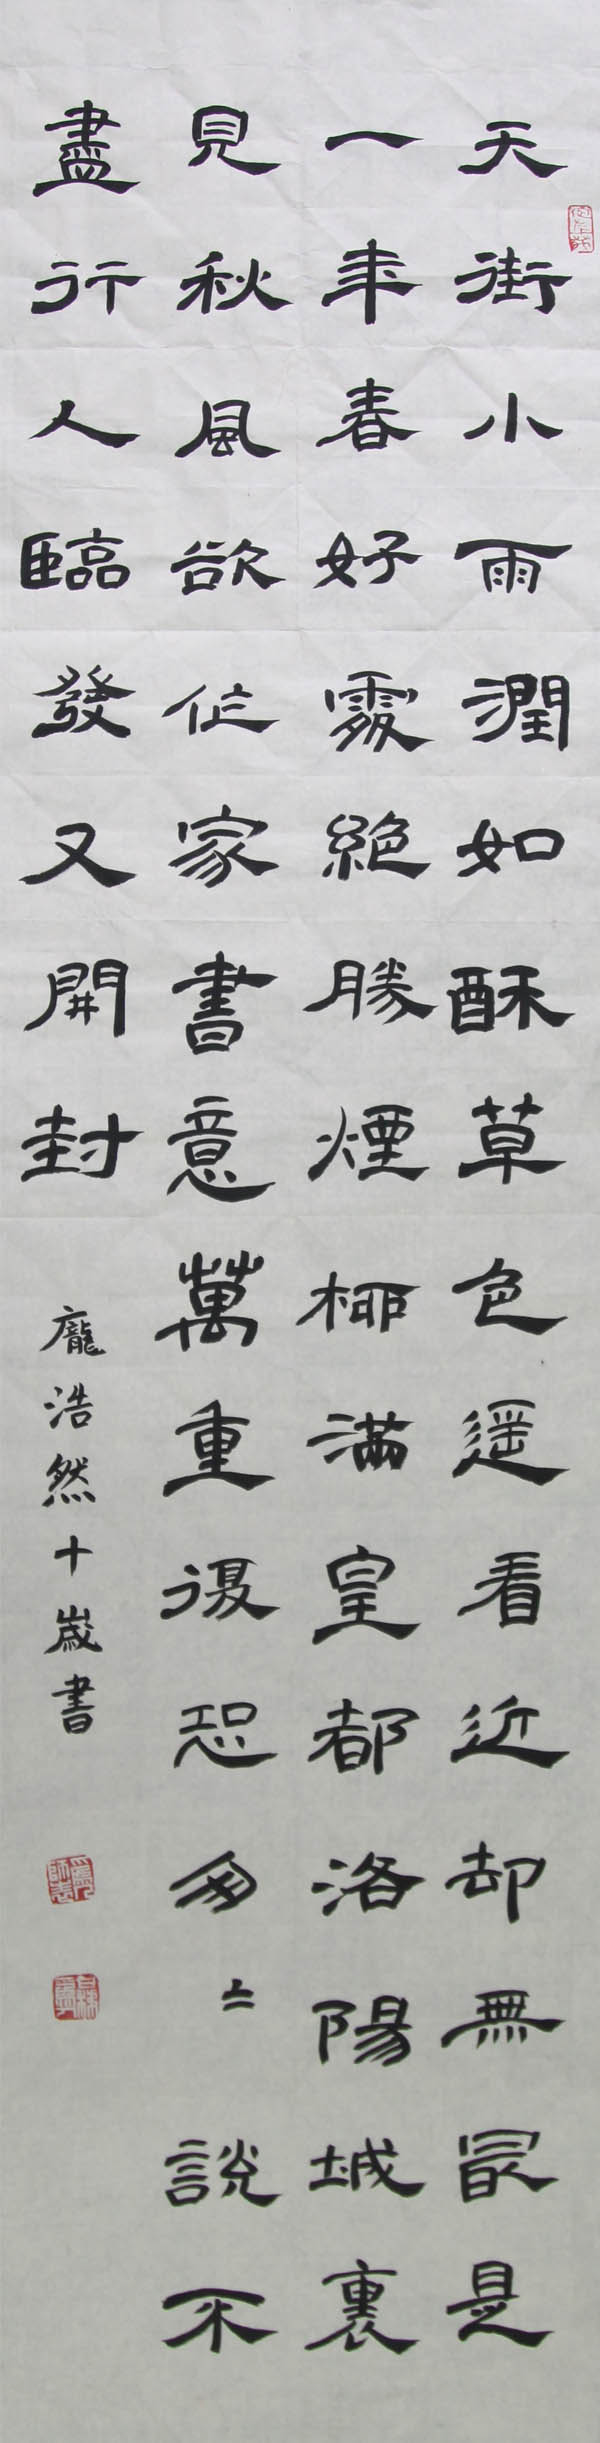 天街小雨潤如酥草色遥看近却無最是
一年春好處絶勝煙柳滿皇都洛陽城裏
見秋風欲作家書意萬重復恐匆〻說不
盡行人臨發又開封
龐浩然十歲書